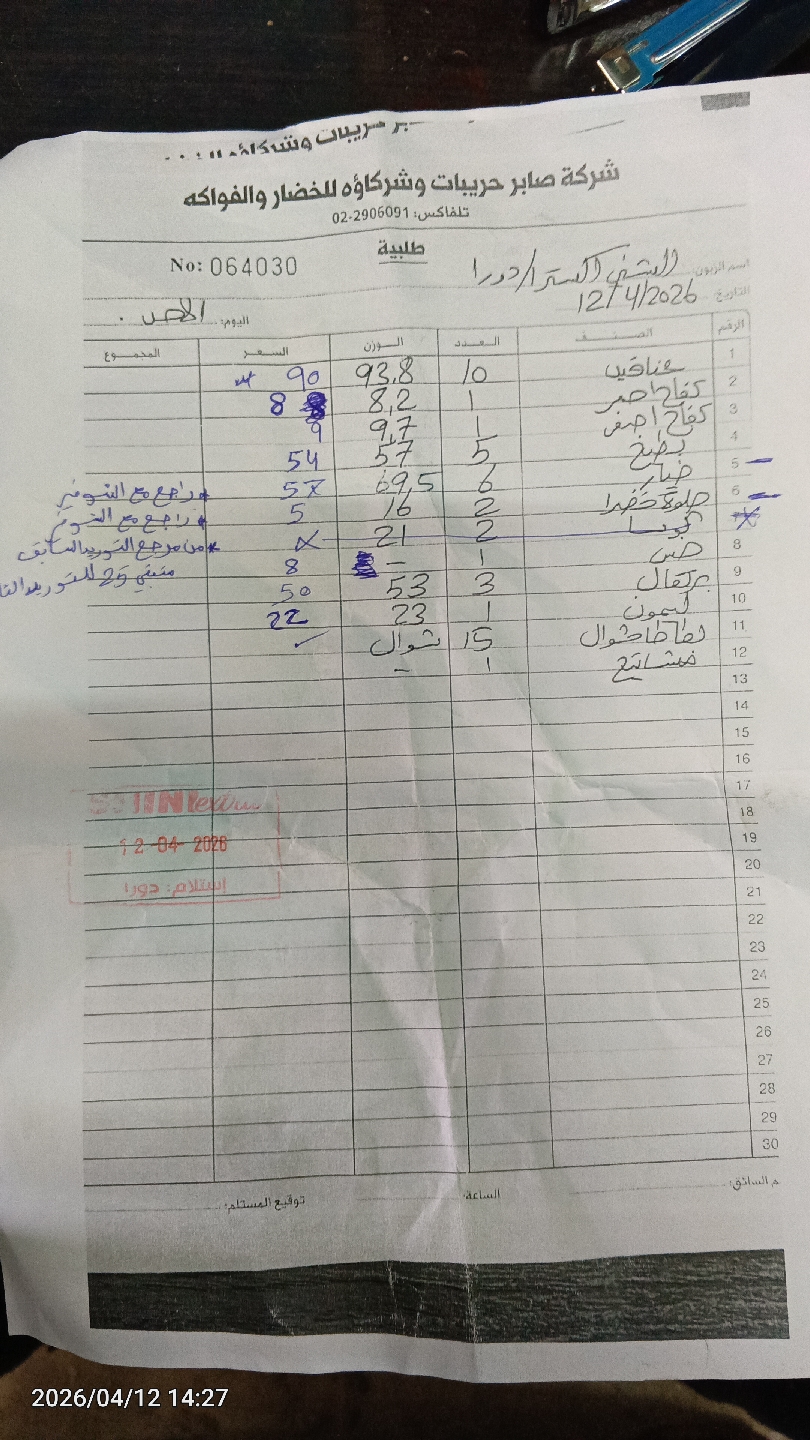 شركة صابر حريبات وشركاؤه للخضار والفواكه
تلفاكس: 02-2906091
طلبية
No: 064030
اسم الزبون: الشني اكسترا/دورا
التاريخ 12/4/2026
اليوم: الاحد.
الرقم الصنف العدد الوزن السعر المجموع
1 10 93,8 90
2 تفاح احمر 1 8,2 8
3 تفاح اصفر 1 9,7 9
4 بطيخ 5 57 54
5 خيار 6 69,5 57 راجع مع الشوفير
6 خضرا 2 16 5 راجع مع الشوفير
كوسا 2 21 x من مرجع التوريد السابق
8 خس 1 - 8 متبقي 25 للتوريد
9 برتقال 3 53 50
10 ليمون 1 23 22
11 بطاطا شوال 15 شوال ✓
12 1 -
13
14
15
16
17
18
19
20
21
22
23
24
25
26
27
28
29
30
12-04-2026
إستلام: دورا
م السائق:
الساعة:
توقيع المستلم:
2026/04/12 14:27